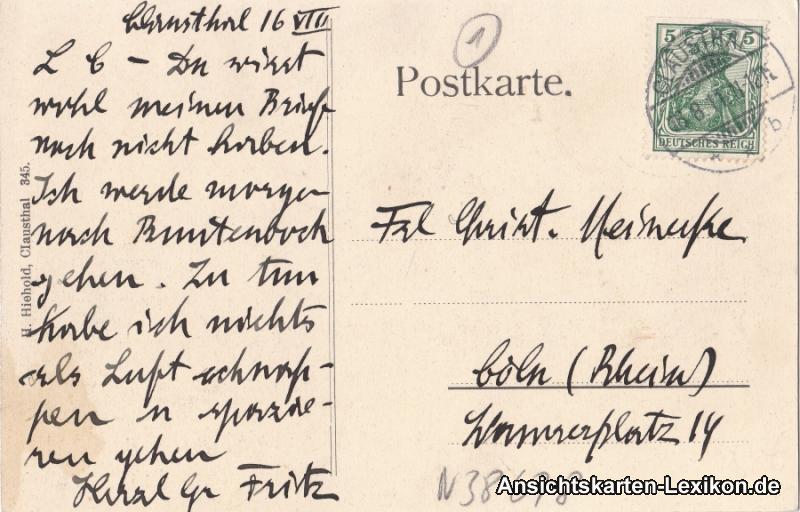 Clausthal 16 VIII
L C – Du wirst
wohl meinen Brief
noch nicht haben.
Ich werde morgen
nach Buntenbock
gehen. Zu tun
habe ich nichts
als Luft schnap-
pen u spazie-
ren gehen
Herzl Gr Fritz
H. Hiehold, Clausthal 345.
1
Postkarte.
5 5
DEUTSCHES REICH
CLAUSTHAL
b
Frl Christ. Meinecke
Cöln (Rhein)
14
N38
Ansichtskarten-Lexikon.de